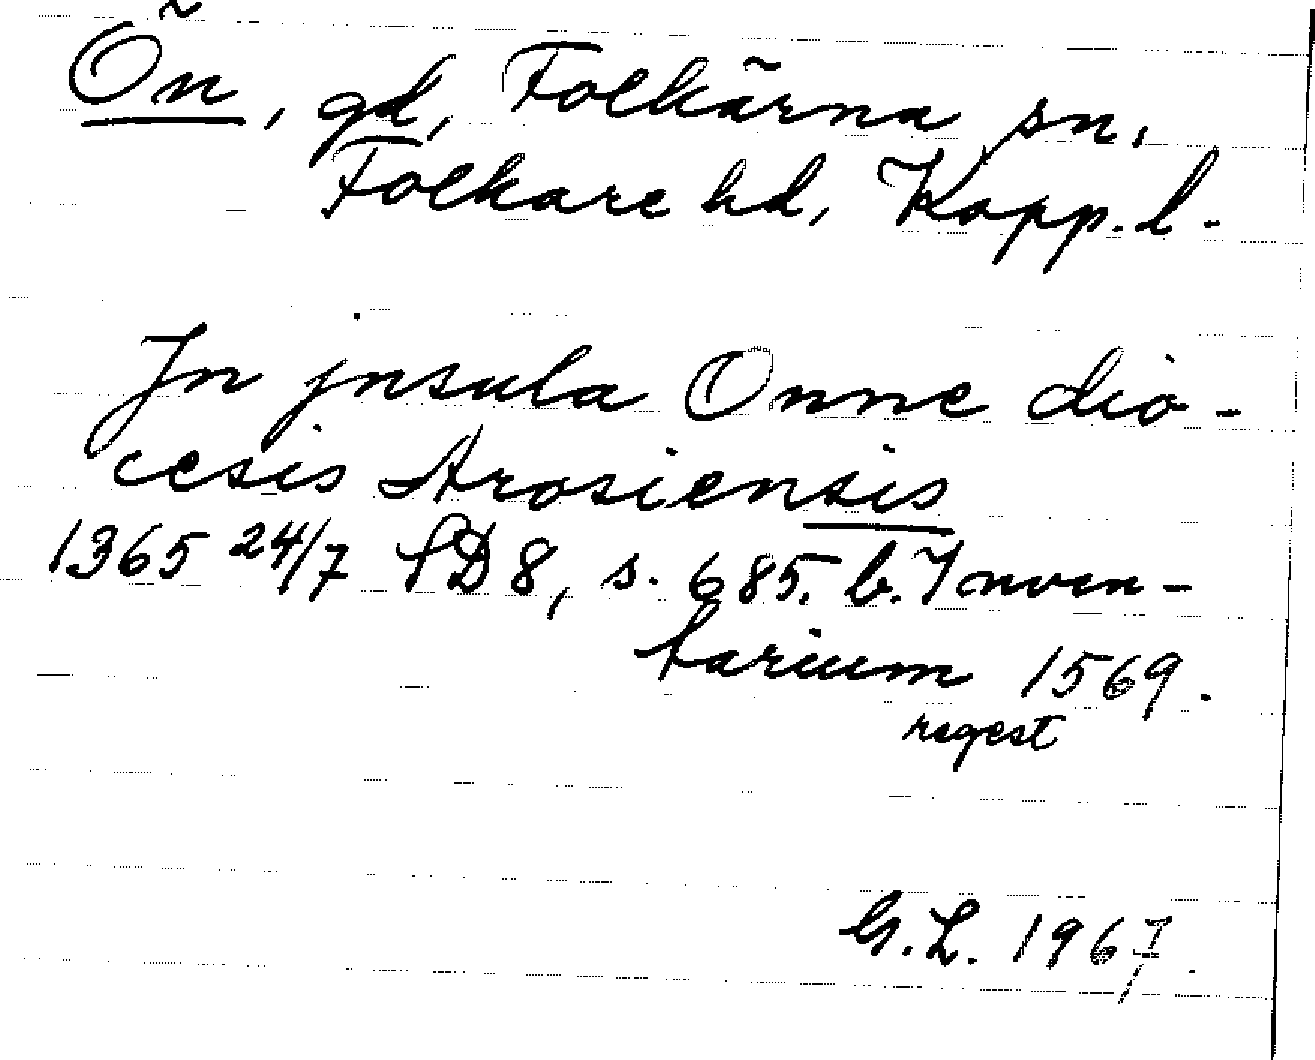 Ön, gd, Folkärna sn,
Folkare hd, Kopp. l.
Jn jnsula Onne dio-
cesis Arosiensis
1365 24/7 SD 8, s. 685. b. Inven-
tarium 1569.
regest
G. L. 1967.